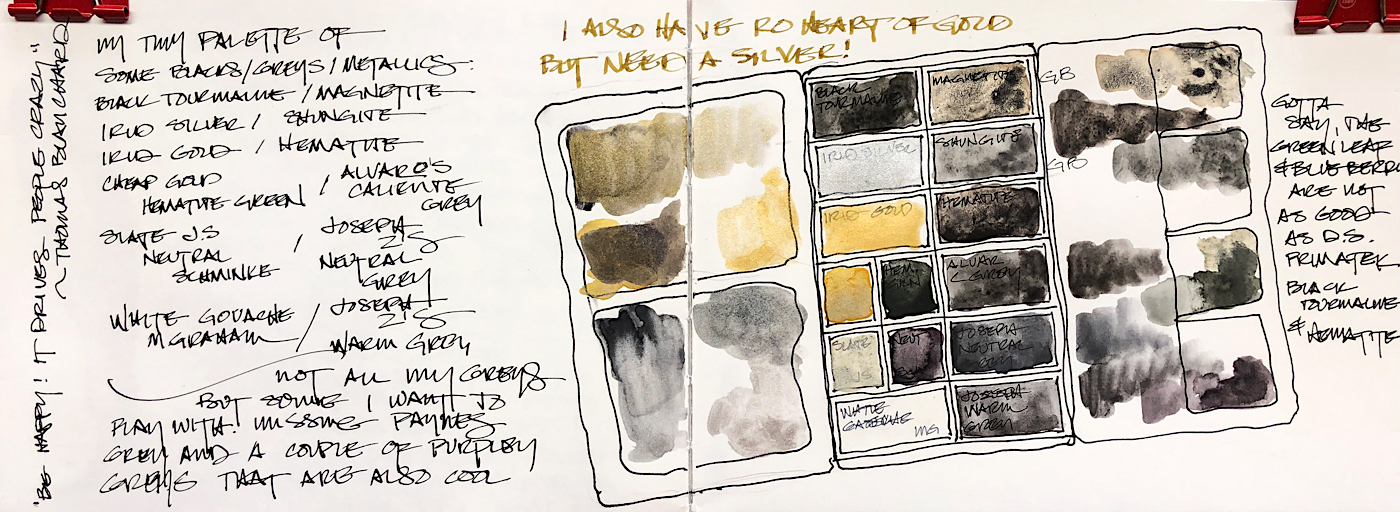 "BE HAPPY! IT DRIVES PEOPLE CRAZY"
~ THOMAS BLAKE CHAARD
MY TINY PALETTE OF
SOME BLACKS/GREYS/METALLICS:
BLACK TOURMALINE / MAGNETITE
IRID SILVER / SHUNGITE
IRID GOLD / HEMATITE
CHEAP GOLD
HEMATITE GREEN / ALVARO'S CALIENTE GREY
SLATE JS
NEUTRAL SCHMINKE / JOSEPH Z'S NEUTRAL GREY
WHITE GOUACHE
M GRAHAM / JOSEPH Z'S WARM GREY
NOT ALL MY GREYS
BUT SOME I WANT TO
PLAY WITH! MISSING PAYNES
GREY AND A COUPLE OF PURPLEY
GREYS THAT ARE ALSO COOL
I ALSO HAVE RO HEART OF GOLD
BUT NEED A SILVER!
BLACK TOURMALINE
MAGNETITE
IRID SILVER
SHUNGITE
IRID GOLD
HEMATITE
HEM. GRN
ALVAR C GREY
SLATE JS
NEUT
JOSEPH NEUTRAL GRY
WHITE GOUACHE MG
JOSEPH WARM GREY
GB
GB
GOTTA
SAY, THE
GREENLEAF
& BLUEBERR
ARE NOT
AS GOOD
AS D.S.
PRIMATEK
BLACK
TOURMALINE
& HEMATITE